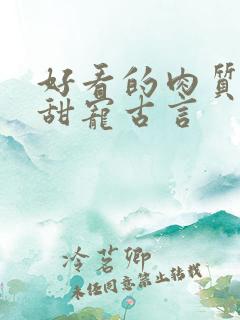 好看的肉質
甜寵古言
冷茗卿
未经同意禁止转载